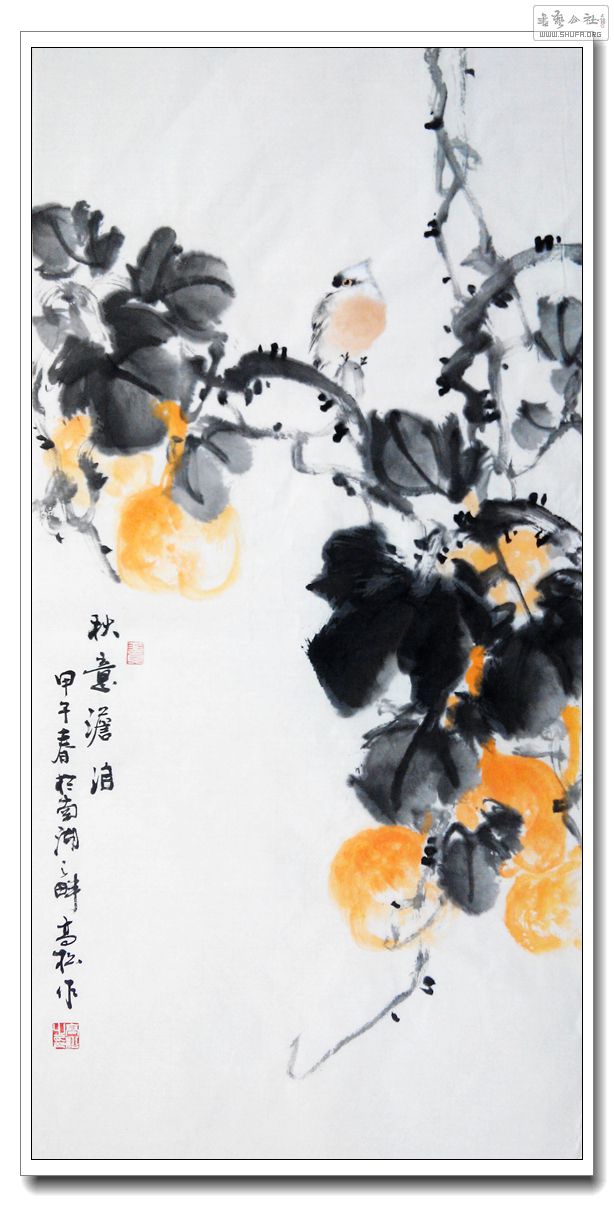 书艺公社
WWW.SHUFA.ORG
秋意澹泊
甲午春於南湖之畔高松作